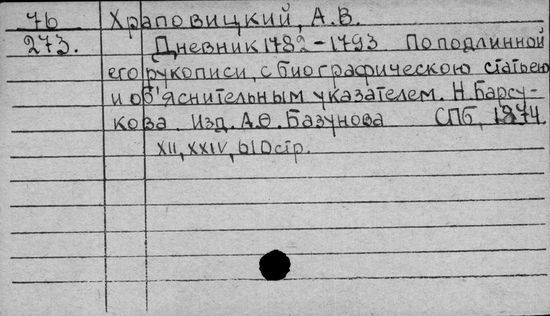 76 Храповицкий, А.В.
273. Дневник 1782-1793 По подлинной
его рукописи, с биографическою статьею
и об'яснительным указателем. Н. Барсу-
кова. Изд. А.Ѳ. Базунова СПб, 1874.
XII, XXIV, 610 стр.